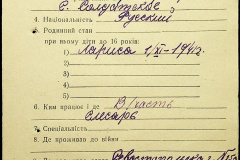 с. Солдатское
4. Національність Русский
5. Родинний стан
при ньому діти до 16 років:
1) Лариса 1/XI-1941г.
2)
3)
6. Ким працює і де В/часть
слесарь
7. Спеціальність
8. Де проживав до війни
Севастополь